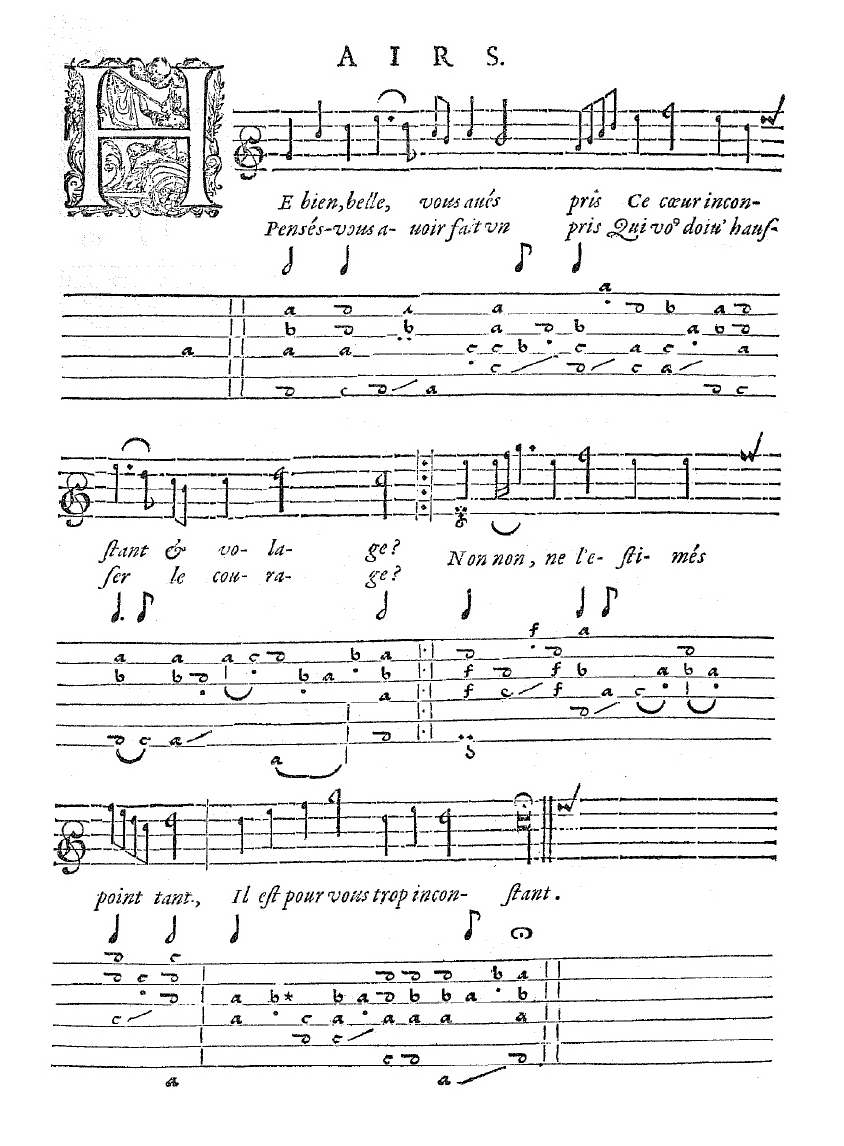 AIRS.
HE bien, belle, vous aués pris Ce cœur incon-
Pensés-vous a- uoir fait vn pris Qui voꝰ doiu' hauſ-
ſtant & vo- la- ge? Non non, ne l'e- ſti- més
ſer le cou- ra- ge?
point tant, Il eſt pour vous trop incon- ſtant.